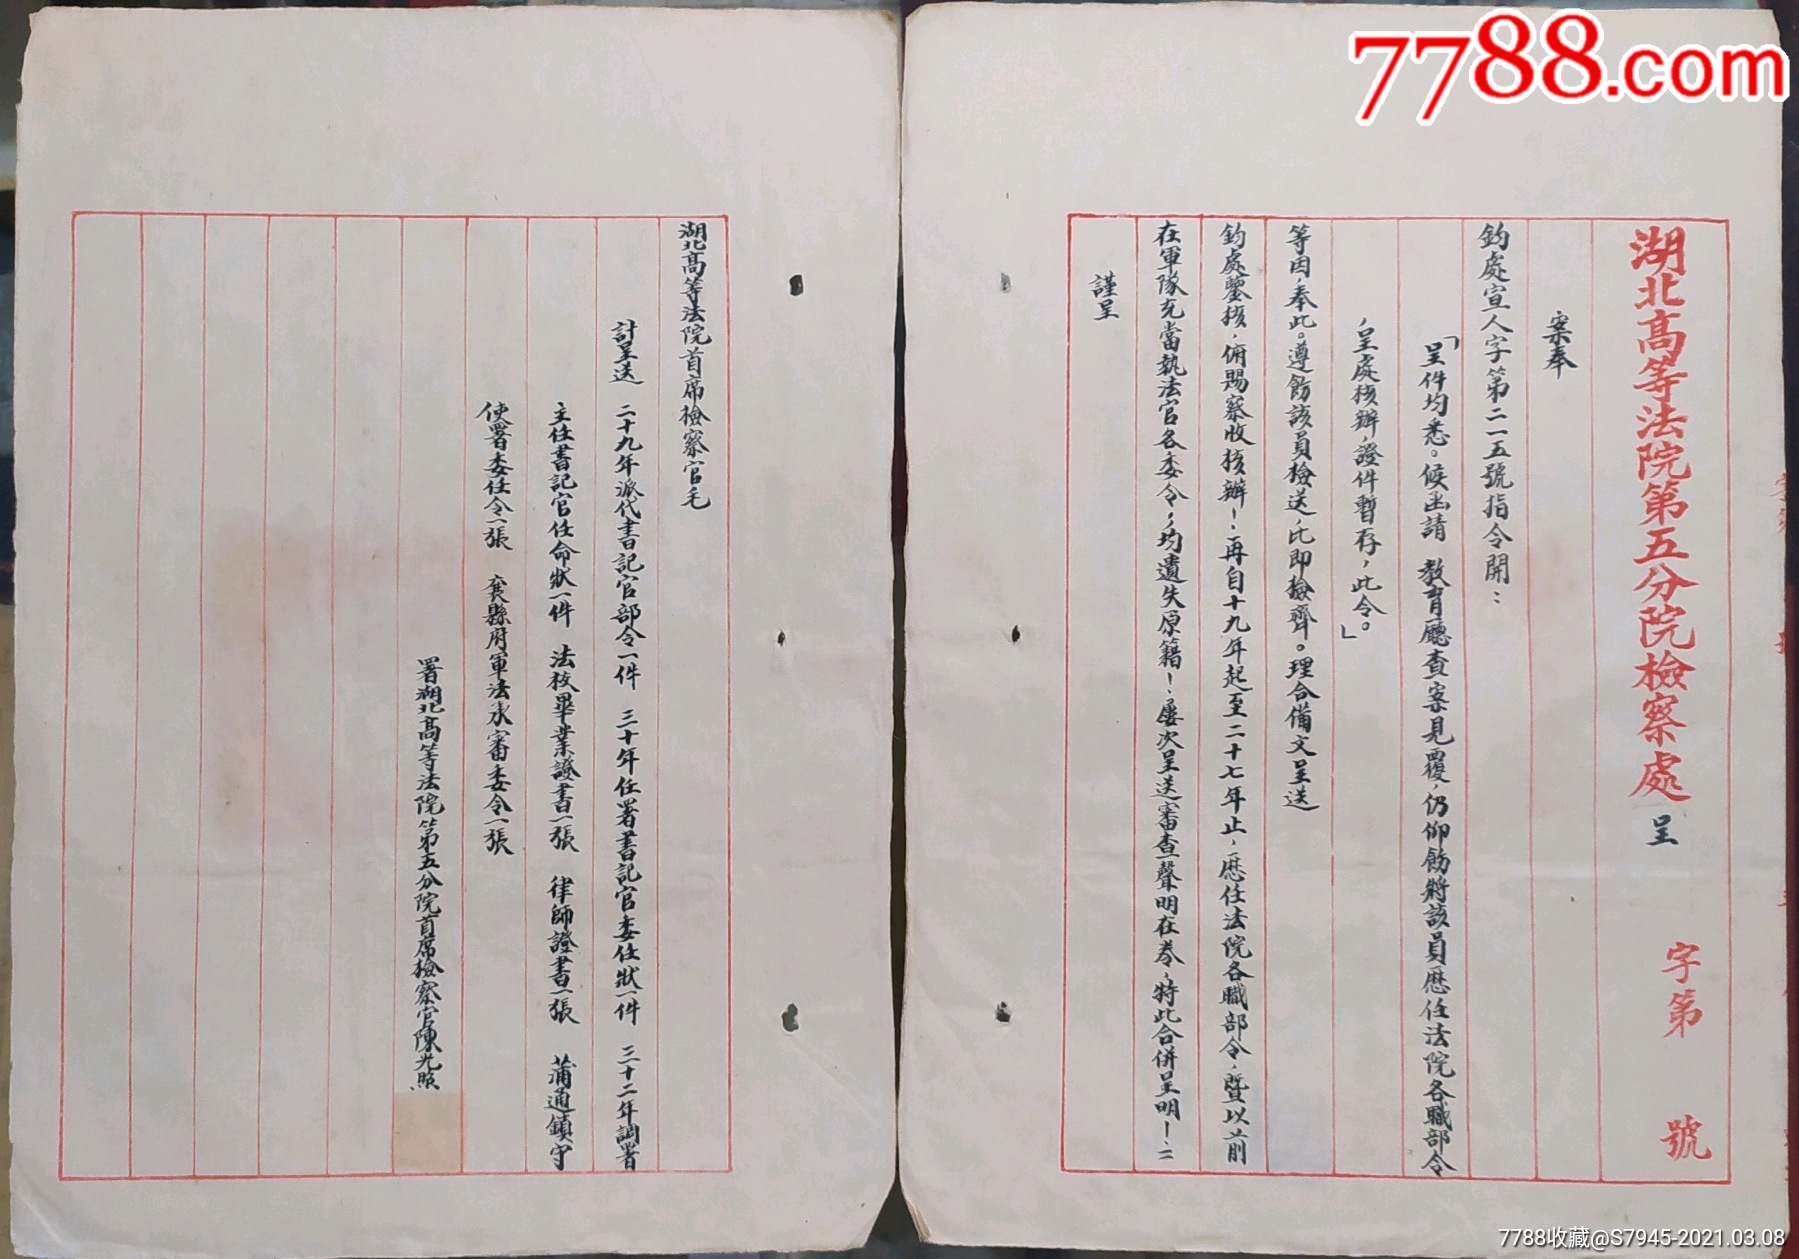 7788.com
湖北高等法院第五分院檢察處 呈 字第 號
案奉
鈞處宣人字第二一五號指令開：
「呈件均悉。候函請 教育廳查案見覆，仍仰飭將該員歷任法院各職部令
，呈處核辦，證件暫存，此令。」
等因，奉此。遵飭該員檢送，比即檢齊。理合備文呈送
鈞處鑒核，俯賜察收核辦！再自十九年起至二十七年止，歷任法院各職部令，暨以前
在軍隊充當執法官各委令，均遺失原籍！屢次呈送審查聲明在卷，特此合併呈明！
謹呈
湖北高等法院首席檢察官毛
計呈送 二十九年派代書記官部令一件 三十年任署書記官委任狀一件 三十二年調署
主任書記官任命狀一件 法校畢業證書一張 律師證書一張 蒲通鎮守
使署委任令一張 襄縣府軍法承審委令一張
署湖北高等法院第五分院首席檢察官陳光照
7788收藏@S7945-2021.03.08